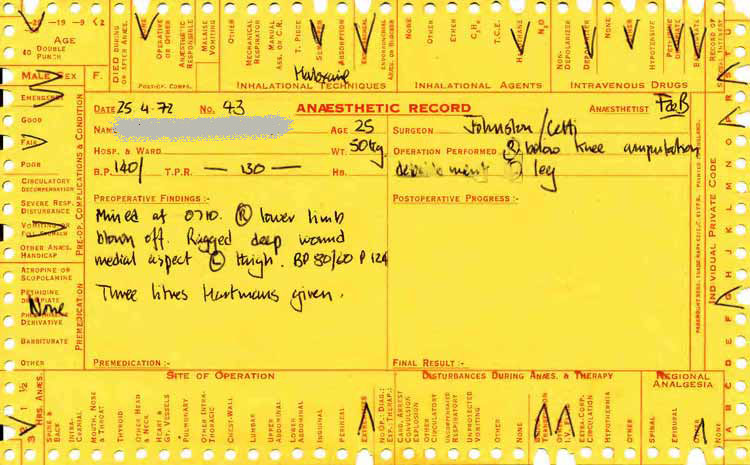 -29 -19 -9 <2
AGE
40 DOUBLE PUNCH
DIED DURING OR AFTER ANÆS.
NONE
OPERATIVE OR OTHER
ANÆSTHETIC RESPONSIBLE
MALAISE VOMITING
OTHER
MECHANICAL RESPIRATOR
MANUAL ASS. OR C.R.
T. PIECE
ABSORPTION
ENDOTRACHEAL
NONE
OTHER
ETHER
C₃H₆
T.C.E.
N₂O
NON-DEPOLARIZER
DEPOLARIZER
NONE
OTHER
HYPOTENSIVE
RECORD OF SPECIAL INTEREST
MALE SEX F.
POST-OP. COMPS.
Haloxaire
INHALATIONAL TECHNIQUES
INHALATIONAL AGENTS
INTRAVENOUS DRUGS
DATE 25 4.72 No. 43
ANÆSTHETIC RECORD
ANÆSTHETIST FaB
NAME AGE 25
SURGEON Johnston/Cetti
HOSP. & WARD WT. 50kg
OPERATION PERFORMED below knee amputation
B.P. 140/ T.P.R. — 130 — HB.
leg
PREOPERATIVE FINDINGS :-
POSTOPERATIVE PROGRESS :-
Mined at 0710. Ⓡ lower limb
blown off. Ragged deep wound
medial aspect Ⓛ thigh. BP 80/60 P 124
Three litres Hartmans given.
PREMEDICATION :-
FINAL RESULT :-
EMERGENCY
GOOD
FAIR
POOR
CIRCULATORY DECOMPENSATION
SEVERE RESP. DISTURBANCE
VOMITING OR FULL STOMACH
OTHER ANÆS. HANDICAP
PRE-OP. COMPLICATIONS & CONDITION
ATROPINE OR SCOPOLAMINE
PETHIDINE OR OPIATE
None
PHENOTHIAZINE DERIVATIVE
BARBITURATE
OTHER
PREMEDICATION
INDIVIDUAL PRIVATE CODE
SITE OF OPERATION
DISTURBANCES DURING ANÆS. & THERAPY
REGIONAL ANALGESIA
3 2 1 ½ HRS. ANÆS.
SPINE & BACK
INTRA-CRANIAL
MOUTH, NOSE & THROAT
THYROID
OTHER HEAD & NECK
HEART & GT. VESSELS
PULMONARY
OTHER INTRA-THORACIC
CHEST-WALL
LUMBAR
UPPER ABDOMINAL
LOWER ABDOMINAL
INGUINAL
PERINEAL
EXTREMITIES
NO OP.: DIAG.: OR THERAP.
CARD. ARREST
CONVULSION
EXPLOSION
OTHER CIRCULATORY
UNCOMPENSATED RESPIRATORY
UNEXPECTED VOMITING
OTHER
NONE
TRANSFUSION
OTHER I.V. FL.
EXTRA-CORP. CIRCULATION
HYPOTHERMIA
OTHER
SPINAL
EPIDURAL
OTHER
NONE